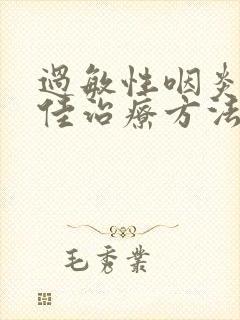 過敏性咽炎
佳治療方法
毛秀業